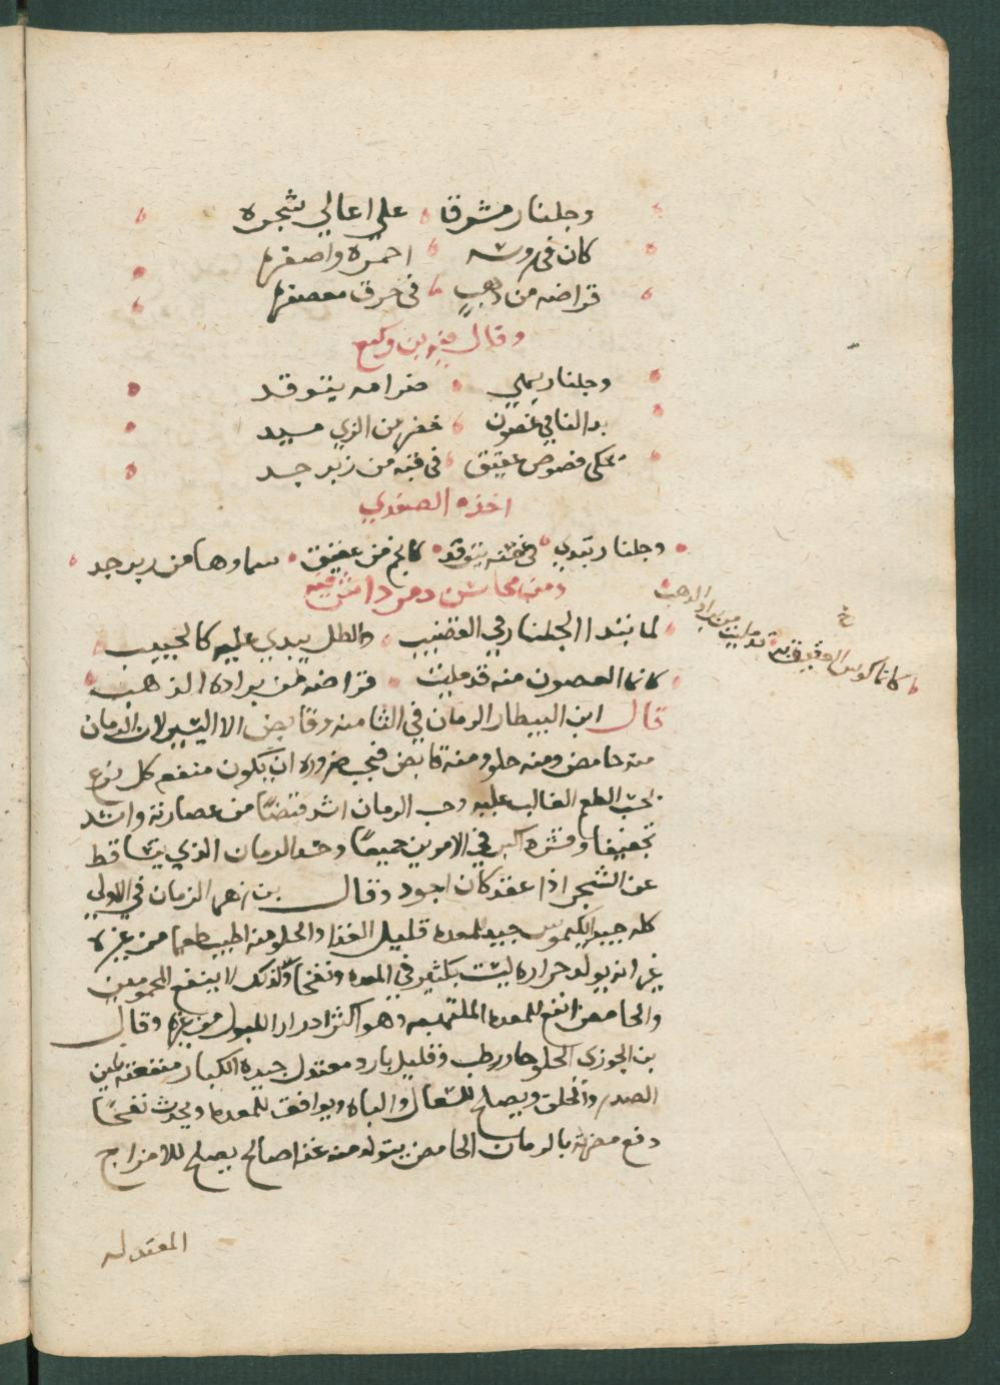 وجلنار مشرقا على اعالي شجره
كان في روسه احمره واصفره
قراضه من ذهبٍ في خرق معصفره
وقال بن وكيع
وجلنار بهي ضرامه يتوقد
بدا لنا في غصون خضر من الري ميد
يحكي فصوص عقيق في قبه من زبرجد
اخذه الصفدي
وجلنار تبدي في غصنه يتوقد كانجم من عقيق سماوها من زبرجد
ومن محاسن
لما تبدا الجلنار في القضيب والطل يبدي عليه كالحبيب
كانما الغصون منه قد مليت قراضه من براده الذهب
خ
كانما كوس العقيق به قد مليت من براد الذهب
قال ابن البيطار الرمان في الثامنه وقابض الا اليسير لان الرمان
منه حامض ومنه حلو ومنه قابض فيجب ضروره ان يكون منفعه كل نوع
بحسب الطعم الغالب عليه وحب الرمان اشد قبضًا من عصارته واشد
تجفيفا وقشره اكبر في الامرين جميعًا وحب الرمان الذي يتساقط
عن الشجر اذا عقد كان اجود وقال بن زهر الرمان في الاولي
كله جيد الكيموس جيد للمعده قليل الغذا والحلو منه اطيب طعما من غيره
غير انه يولد حراره ليست بكثير في المعده ونفخا ولذلك لا ينفع المحمومين
والحامض انفع للمعده الملتهبه وهو اكثر ادرارا للبول من غيره وقال
بن الجوزي الحلو حار رطب وقليل بارد معتدل جيده الكبار منفعته يلين
الصدر والحلق ويصلح للسعال والباه ويوافق للمعده ويحدث نفخًا
دفع مضرته بالرمان الحامض يتولد منه غذا صالح يصلح للامزاج
المعتدله